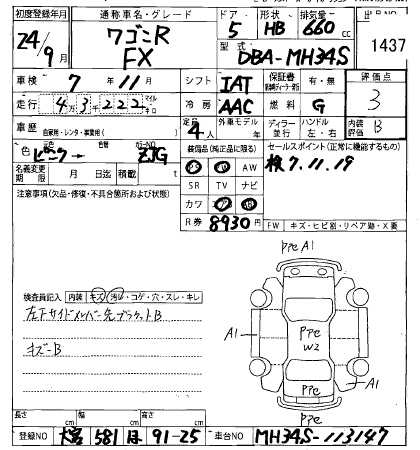 初度登録年月 通称車名・グレード ドア 形状 排気量 出品NO
24/9月 ワゴンR FX 5 HB 660cc 1437
型式 DBA-MH34S
車検 7年11月 シフト IAT 保証書 有・無 評価点
走行 4万3千222 マイル キロ 冷房 AAC 燃料 G 3
車歴 自家用・レンタ・事業用( ) 定員 4人 外車モデル 年 ディーラー 並行 ハンドル 左・右 内装評価 B
色 ピンク→ 色替 カラーNO ZJG 装備品(純正品に限る) セールスポイント(正常に機能するもの)
名義変更期限 月 日迄 積載 t AW 検7.11.19
注意事項(欠品・修復・不具合箇所および状態) SR TV ナビ
カワ
R券 8930円 FW キズ・ヒビ割・リペア跡・X要
PPe A1
検査員記入 内装 キズ・汚れ・コゲ・穴・スレ・キレ
左下サイドメンバー先ブラケットB
キズ-B
A1
PPe
W2
PPe
A1
PPe
長さ cm 幅 cm 高さ cm
登録NO 大宮 581 ほ 91-25 車台NO MH34S-113147